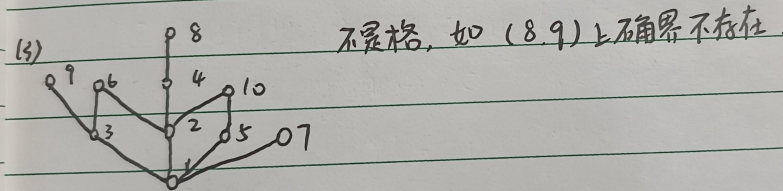 8 不是格, 如 (8.9) 上确界不存在
(5)
9 6 4 10
3 2 5 7
1